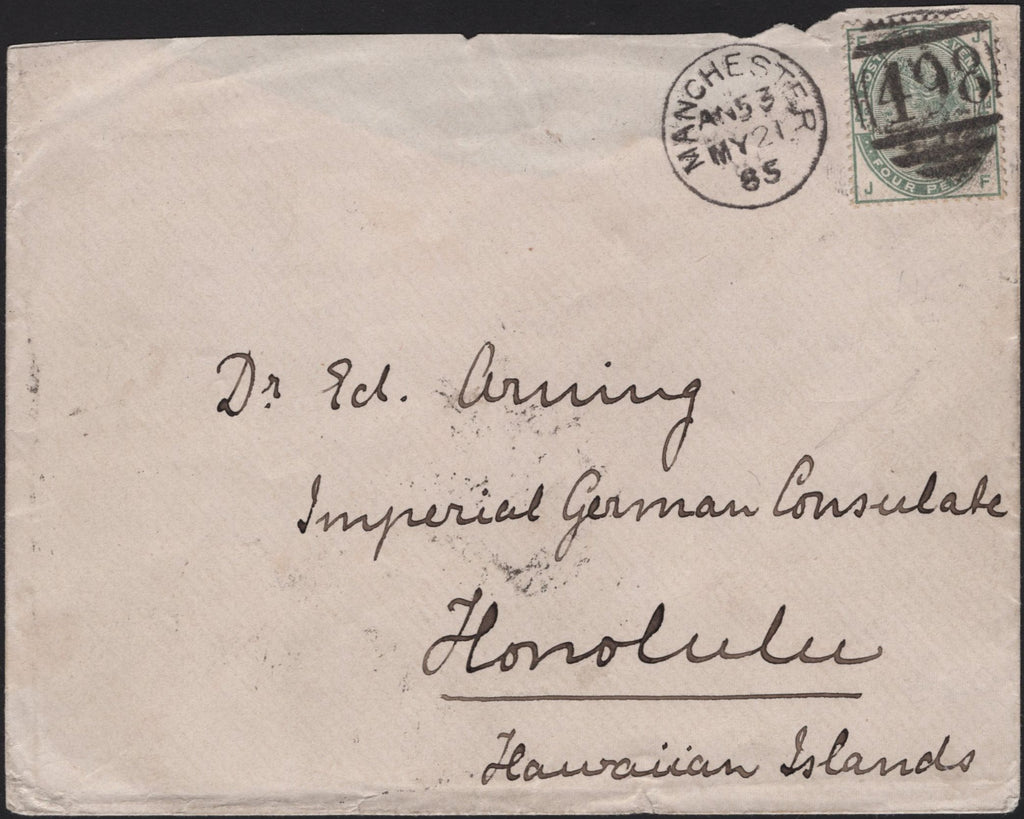 MANCHESTER
AN53
MY21
85
498
POST
J
FOUR PE
J F
Dr Ed. Arning
Imperial German Consulate
Honolulu
Hawaiian Islands